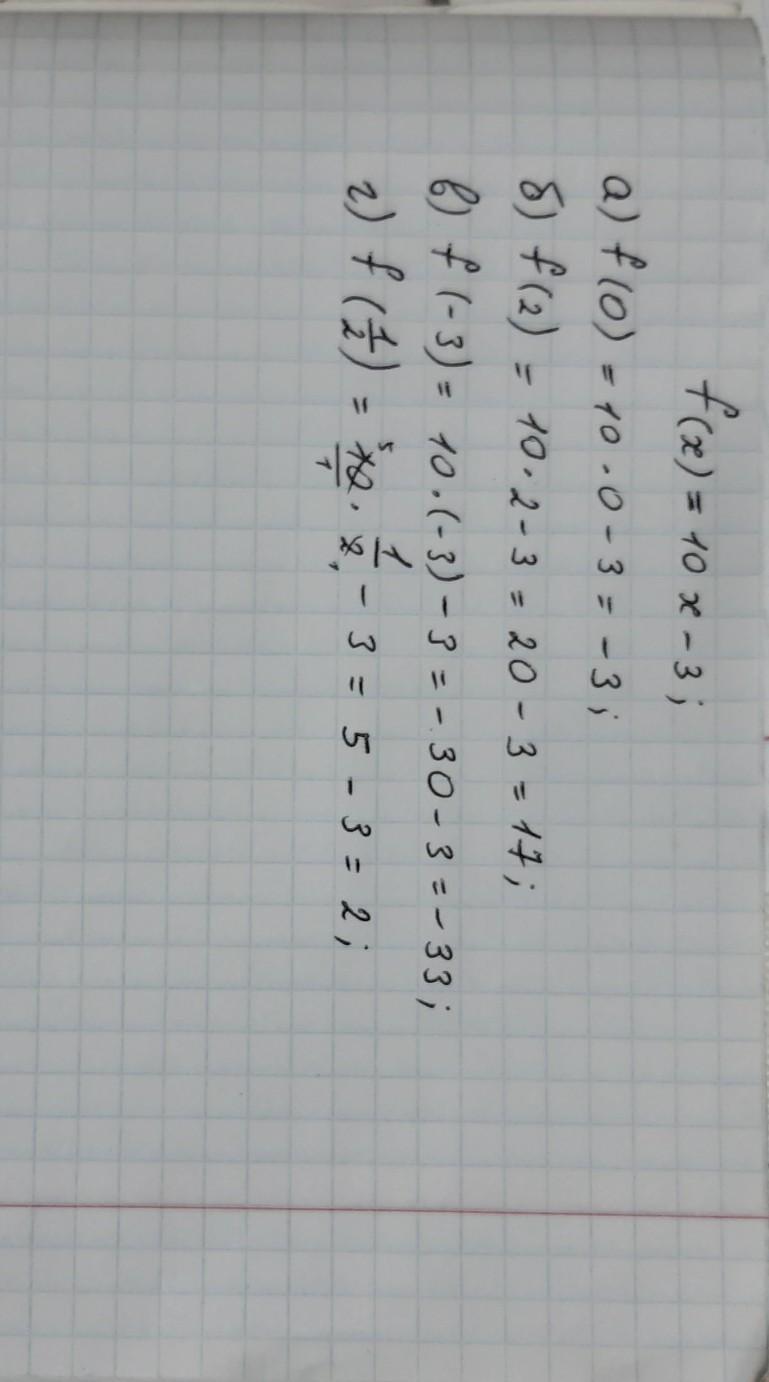 f(x) = 10x - 3;
а) f(0) = 10 · 0 - 3 = -3;
б) f(2) = 10 · 2 - 3 = 20 - 3 = 17;
в) f(-3) = 10 · (-3) - 3 = -30 - 3 = -33;
г) f(1/2) = 10/1 · 1/2 - 3 = 5 - 3 = 2;